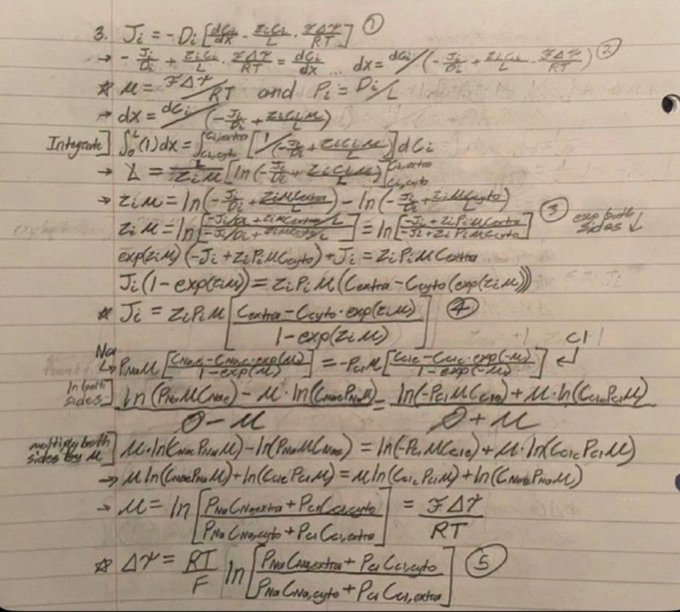 3. Jᵢ = -Dᵢ [dCᵢ/dx - zᵢCᵢ/L · FΔΨ/RT] ①
→ -Jᵢ/Dᵢ + zᵢCᵢ/L · FΔΨ/RT = dCᵢ/dx ... dx = dCᵢ/(-Jᵢ/Dᵢ + zᵢCᵢ/L · FΔΨ/RT) ②
☆ μ = FΔΨ/RT and Pᵢ = Dᵢ/L
→ dx = dCᵢ/(-Jᵢ/Dᵢ + zᵢCᵢμ/L)
Integrate] ∫₀ᴸ(1)dx = ∫_{Ci,cyto}^{Ci,extra} [1/(-Jᵢ/Dᵢ + zᵢCᵢμ/L)] dCᵢ
→ L = L/zᵢμ [ln(-Jᵢ/Dᵢ + zᵢCᵢμ/L)]_{Ci,cyto}^{Ci,extra}
→ zᵢμ = ln(-Jᵢ/Dᵢ + zᵢμCextra/L) - ln(-Jᵢ/Dᵢ + zᵢμCcyto/L)
zᵢμ = ln[(-Jᵢ/Dᵢ + zᵢμCextra/L)/(-Jᵢ/Dᵢ + zᵢμCcyto/L)] = ln[(-Jᵢ + zᵢPᵢμCextra)/(-Jᵢ + zᵢPᵢμCcyto)] ③ exp both sides ↓
exp(zᵢμ)(-Jᵢ + zᵢPᵢμCcyto) + Jᵢ = zᵢPᵢμCextra
Jᵢ(1 - exp(zᵢμ)) = zᵢPᵢμ(Cextra - Ccyto(exp(zᵢμ)))
☆ Jᵢ = zᵢPᵢμ [(Cextra - Ccyto · exp(zᵢμ))/(1 - exp(zᵢμ))] ④
Na Cl
↳ PNaμ [(CNae - CNac · exp(μ))/(1 - exp(μ))] = -PClμ [(CCle - CClc · exp(-μ))/(1 - exp(-μ))] ↵
ln both sides] (ln(PNaμCNae) - μ · ln(CNacPNaμ))/(0 - μ) = (ln(-PClμCCle) + μ · ln(CClcPClμ))/(0 + μ)
multiply both sides by μ] μ · ln(CNacPNaμ) - ln(PNaμCNae) = ln(-PClμCCle) + μ · ln(CClcPClμ)
→ μ ln(CNacPNaμ) + ln(CClePClμ) = μ ln(CClcPClμ) + ln(CNaePNaμ)
→ μ = ln [(PNaCNa,extra + PClCCl,cyto)/(PNaCNa,cyto + PClCCl,extra)] = FΔΨ/RT
☆ ΔΨ = RT/F ln [(PNaCNa,extra + PClCCl,cyto)/(PNaCNa,cyto + PClCCl,extra)] ⑤